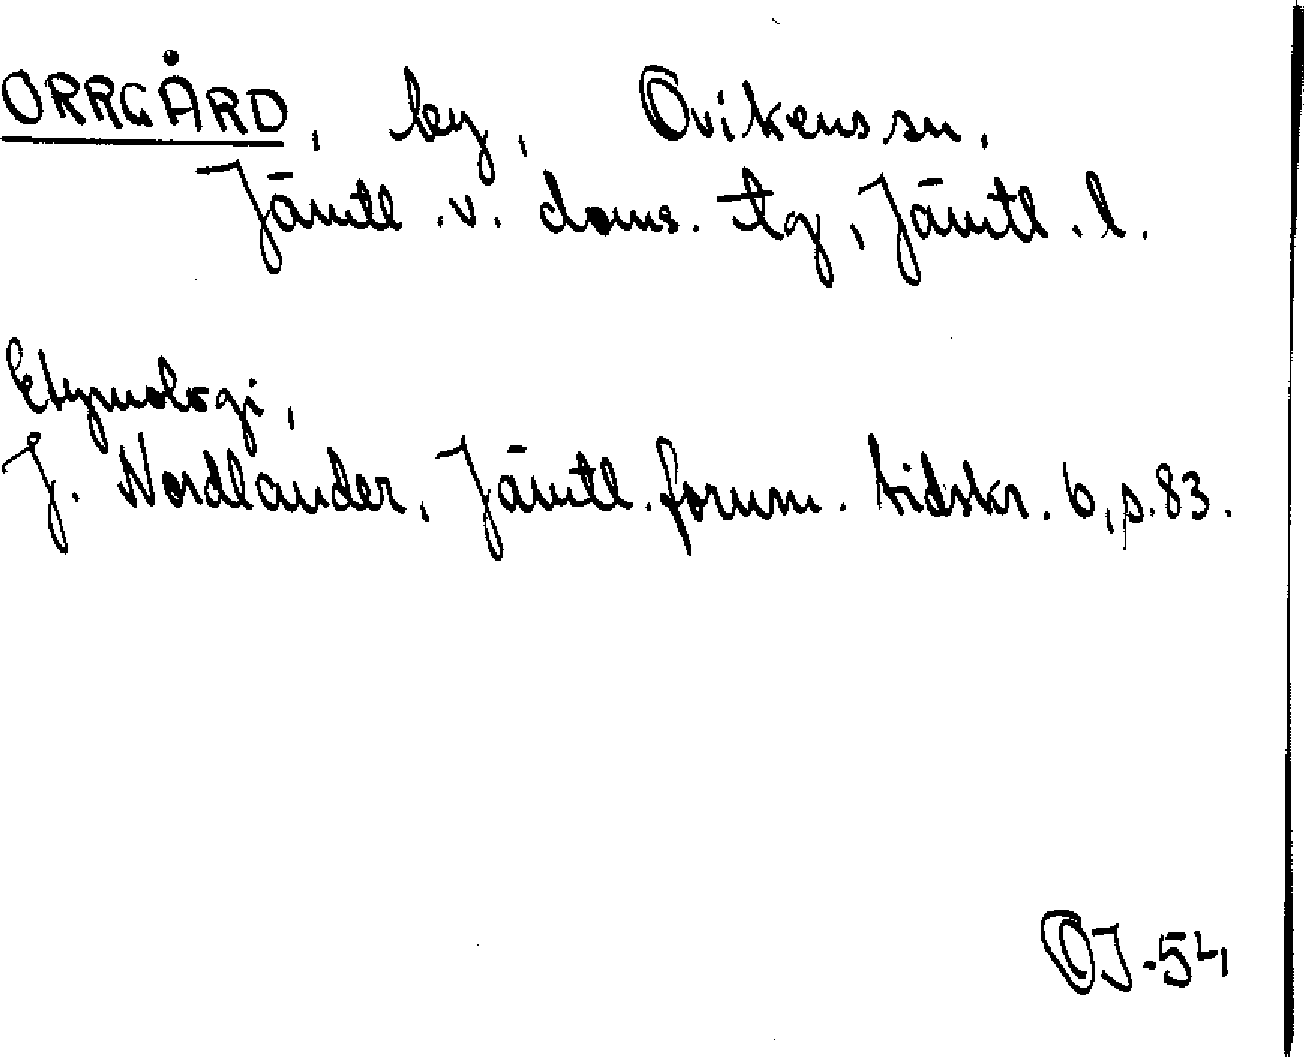 ORRGÅRD, by, Ovikens sn,
Jämtl. v. doms. tg, Jämtl. l.
Etymologi,
J. Nordlander, Jämtl. fornm. tidskr. 6, p. 83.
OJ-54